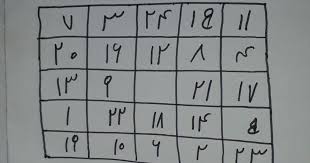 ۷ ۳ ۲۴ ۱۵ ۱۱
۲۰ ۱۶ ۱۲ ۸ ۴
۱۳ ۹ ۲۱ ۱۷
۱ ۲۲ ۱۸ ۱۴ ۵
۱۹ ۱۰ ۶ ۲ ۲۳